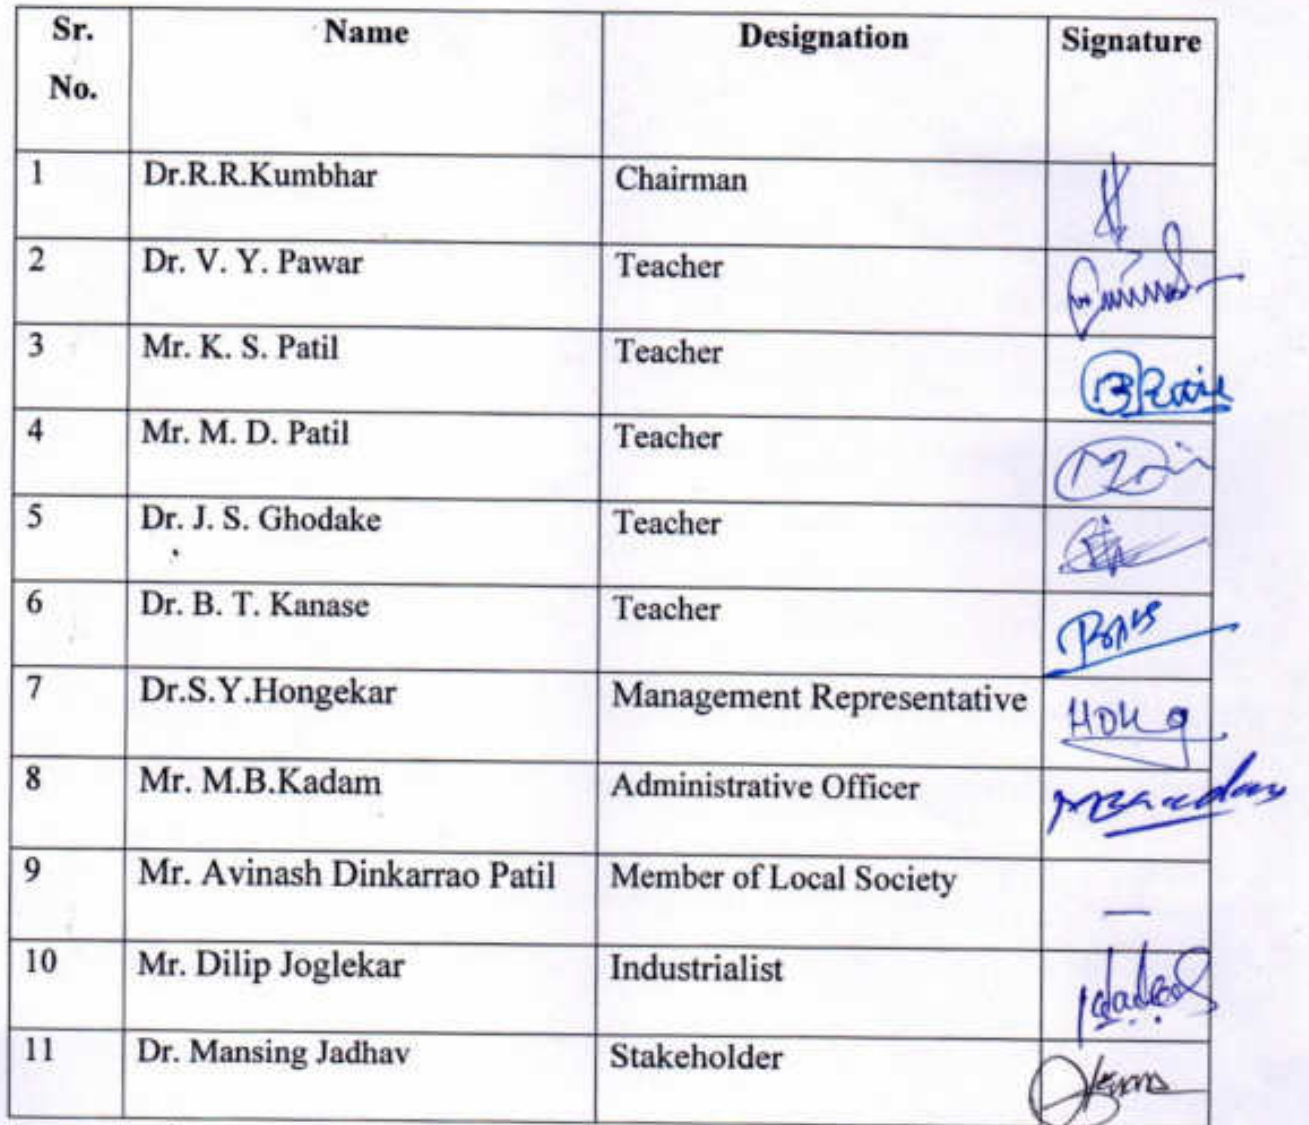 Sr. No. Name Designation Signature
1 Dr.R.R.Kumbhar Chairman
2 Dr. V. Y. Pawar Teacher
3 Mr. K. S. Patil Teacher
4 Mr. M. D. Patil Teacher
5 Dr. J. S. Ghodake Teacher
6 Dr. B. T. Kanase Teacher
7 Dr.S.Y.Hongekar Management Representative
8 Mr. M.B.Kadam Administrative Officer
9 Mr. Avinash Dinkarrao Patil Member of Local Society —
10 Mr. Dilip Joglekar Industrialist
11 Dr. Mansing Jadhav Stakeholder